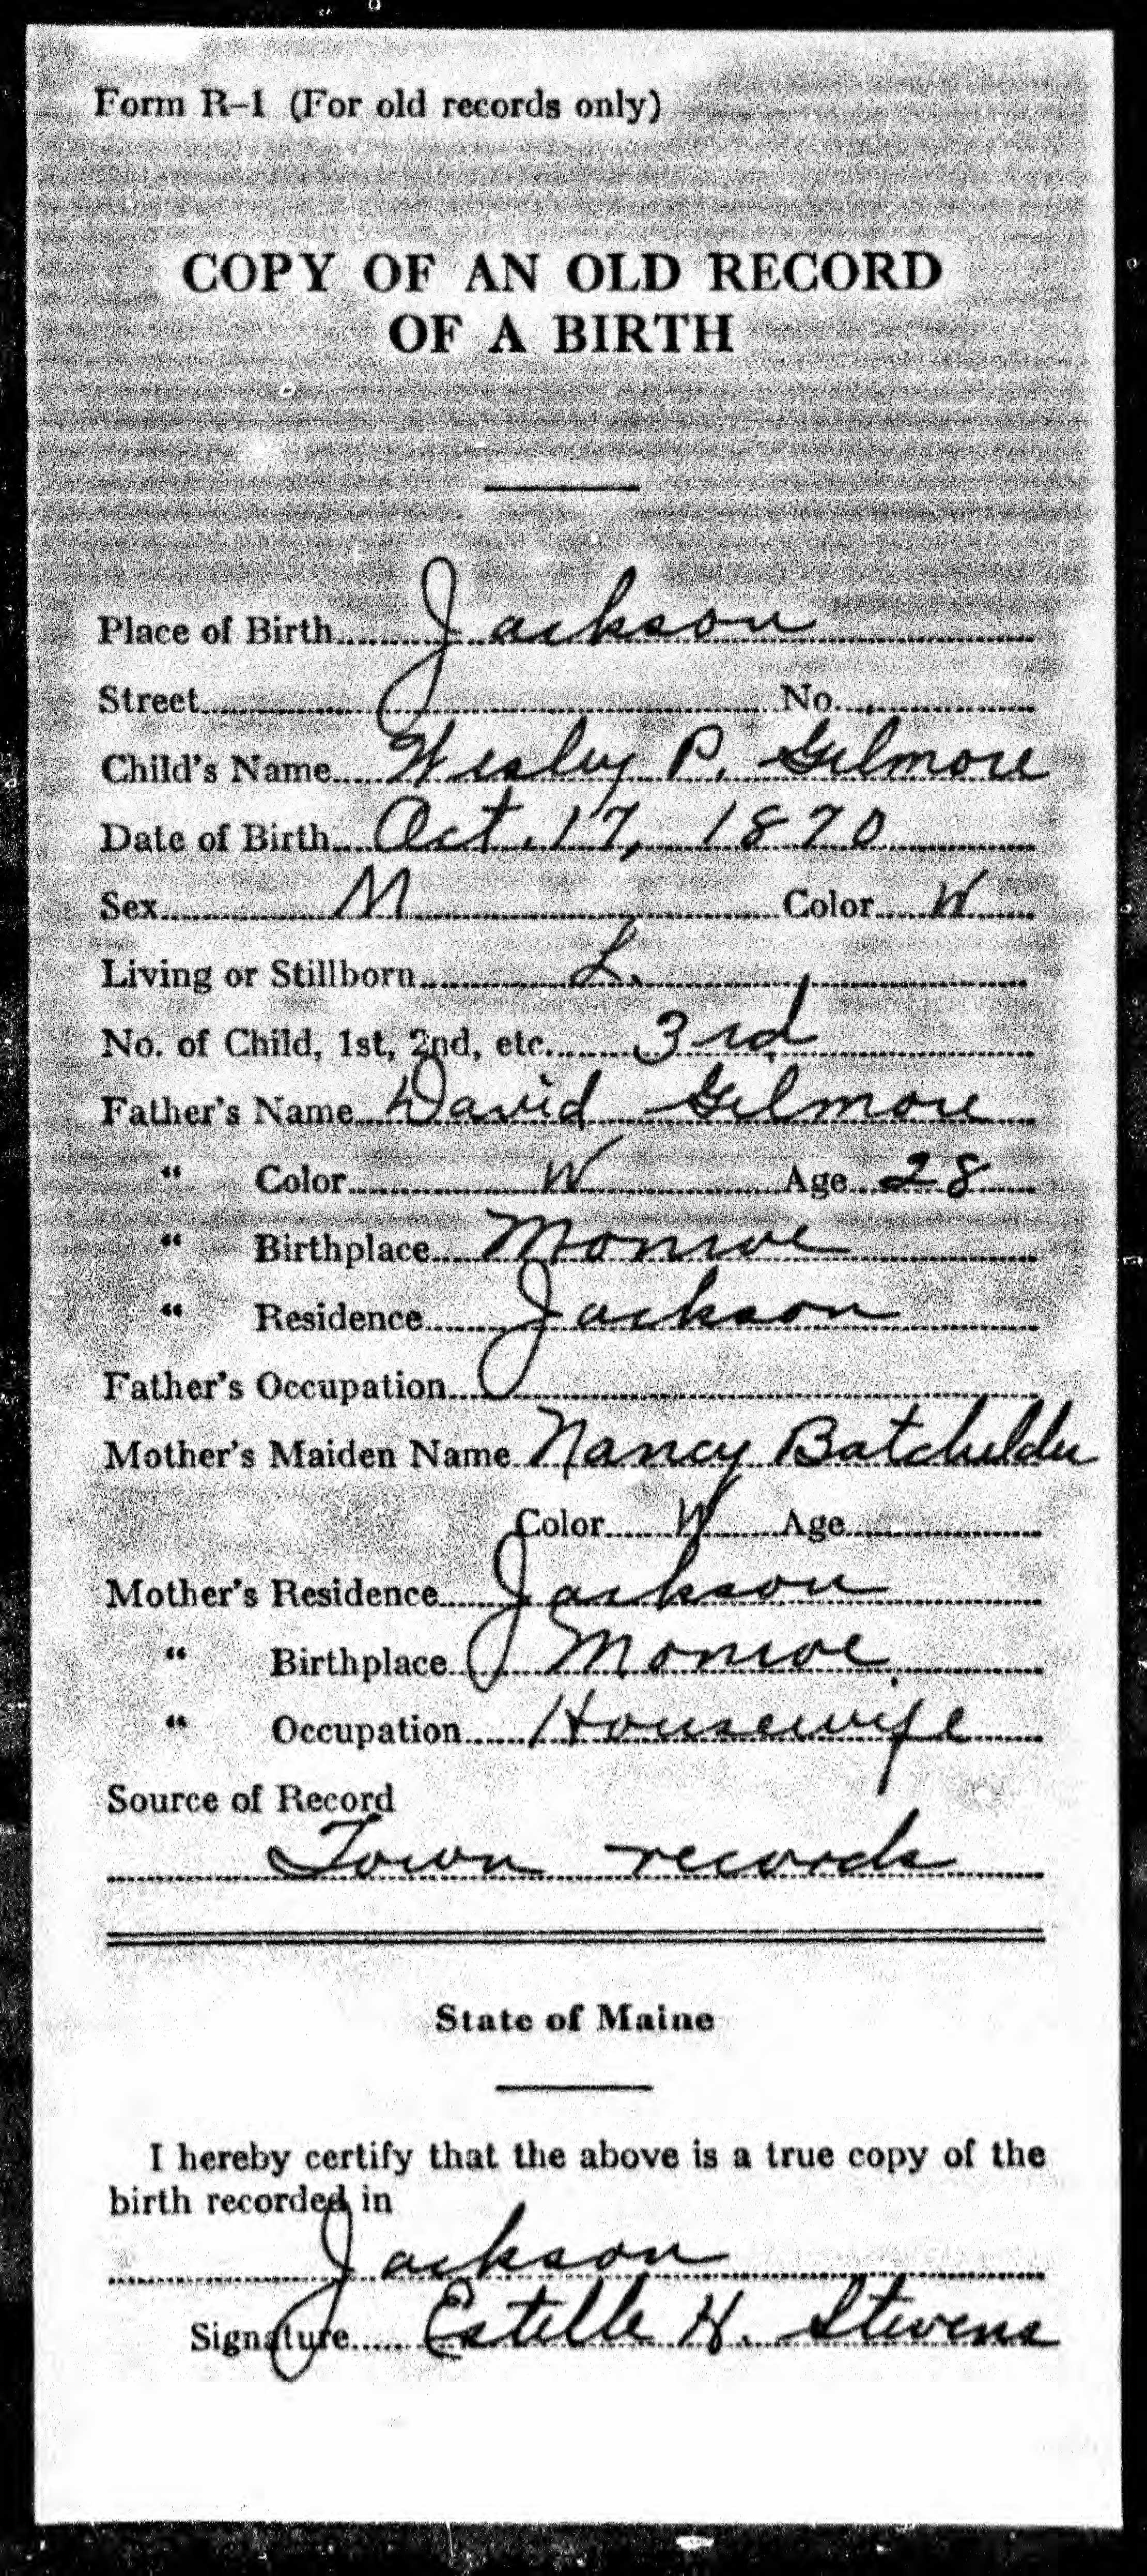 Form R-1 (For old records only)
COPY OF AN OLD RECORD
OF A BIRTH
Place of Birth Jackson
Street No.
Child's Name Wesley P. Gilmore
Date of Birth Oct. 17, 1870
Sex M Color W
Living or Stillborn L.
No. of Child, 1st, 2nd, etc. 3rd
Father's Name David Gilmore
" Color W Age 28
" Birthplace Monroe
" Residence Jackson
Father's Occupation
Mother's Maiden Name Nancy Batchelder
Color W Age
Mother's Residence Jackson
" Birthplace Monroe
" Occupation Housewife
Source of Record
Town records
State of Maine
I hereby certify that the above is a true copy of the
birth recorded in
Jackson
Signature Estelle H. Stevens